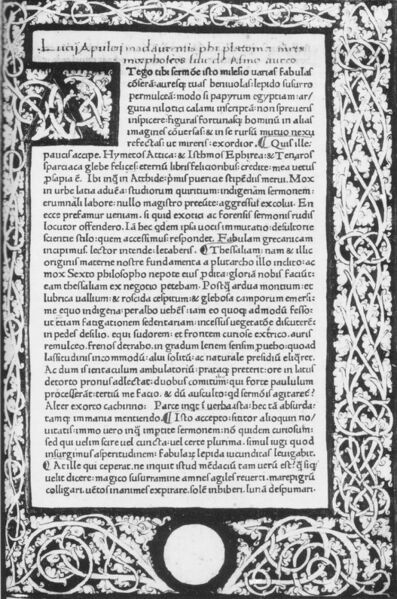 Lucij Apuleij madaurensis phi platonici
morphoseos
AT Tego tibi sermõe isto milesio uarias fabulas
cõserã: aurescp tuas beniuolas: lepido susurro
permulceã: modo si papyrum egyptiam: ar/
gutia nilotici calami inscriptã: non spreueris
inspicere: figuras fortunascp hominũ in alias
imagines cõuersas: & in se rursũ mutuo nexu
refectas: ut mireris: exordior. ¶ Quis ille:
paucis accipe. Hymetos Attica: & Isthmos Ephirea: & Tenaros
spartiaca glebe felices: eternũ libris felicioribus credite: mea uetus
psapia ẽ. Ibi linguã Atthide: pmis puericie stipẽdiis merui. Mox
in urbe latia aduẽa: studiorum quiritium: indigenãm sermonem:
erumnali labore: nullo magistro preeunte: aggressus excolui. En
ecce prefamur ueniam. si quid exotici ac forensis sermonis rudis
locutor offendero. Iã hec qdem ipsa uocis immutatio: desultorie
scientie stilo: quem accessimus respondet. Fabulam grecanicam
incipimus. lector intende: letaberis. ¶ Thessaliam: nam & illic
originis materne nostre fundamenta a plutarcho illo inclito: ac
mox Sexto philosopho nepote eius pdita: gloriã nobis faciũt:
eam thessaliam ex negotio petebam. Postcp ardua montium: et
lubrica uallium: & roscida cespitum: & glebosa camporum emersi:
me equo indigena: peralbo uehẽs: iam eo quocp admodũ fesso:
ut etiam fatigationem sedentariam: incessus uegetatõe discuterẽ:
in pedes desilio. equi sudorem: et frontem curiose exfrico. auris
remulceo. frenos detrabo. in gradum lenem sensim puebo: quoad
lassitudinis incommodũ: alui solitũ: ac naturale presidiũ eliqret.
Ac dum is ientaculum ambulatoriũ: prata cp preterit: ore in latus
detorto pronus adlectat: duobus comitum: qui forte paululum
processerãt: tertiũ me facio. & dũ ausculto: qd sermõis agitarẽt?
Alter exorto cachinno: Parce inqt ĩ uerba ista: hec tã absurda:
tamcp immania mentiendo. ¶ Isto accepto: sititor alioquin no/
uitatis: immo uero inq impertite sermonem: nõ quidem curiosum:
sed qui uelim scire uel cuncta: uel certe plurima. simul iugi: quod
insurgimus aspritudinem: fabularum lepida iucunditas leuigabit.
¶ At ille qui ceperat. ne inquit istud mẽdaciũ tam uerũ est: cp siqs
uelit dicere: magico susurramine amnes agiles reuerti. mare pigrũ
colligari. uẽtos inanimes expirare. solẽ inhiberi. lunã despumari.